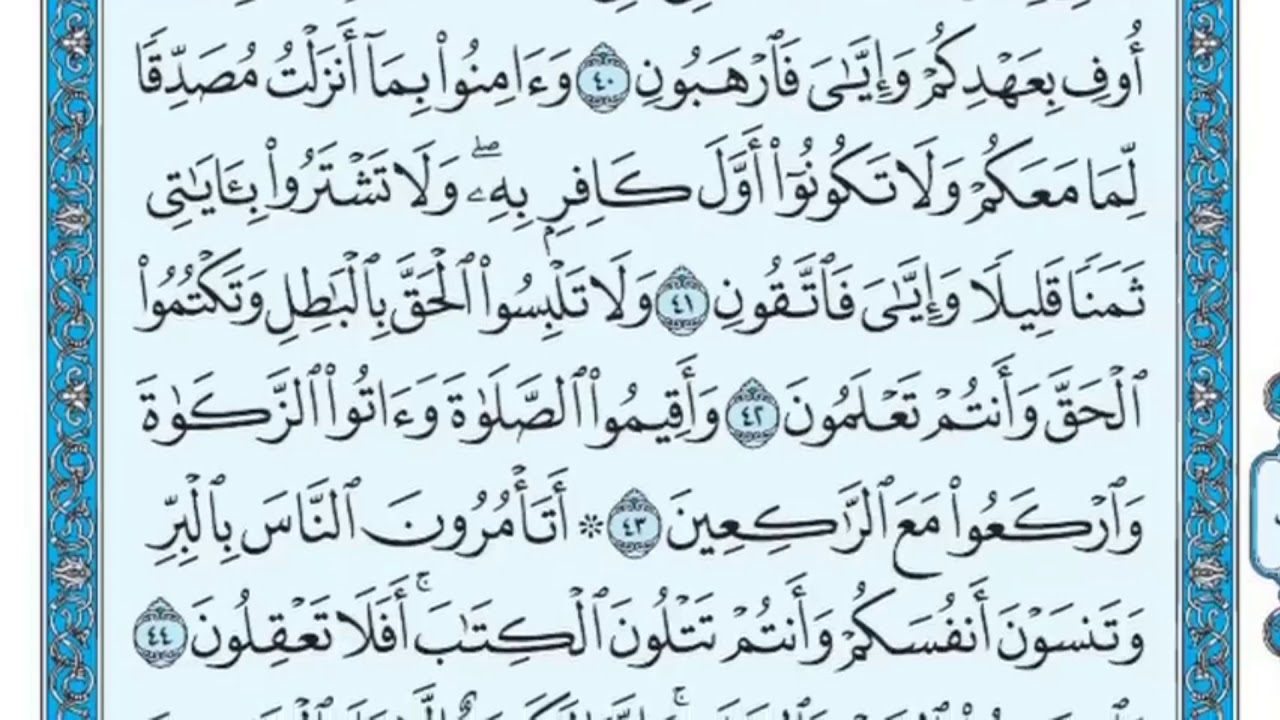 أُوفِ بِعَهْدِكُمْ وَإِيَّـٰىَ فَٱرْهَبُونِ ٤٠ وَءَامِنُوا۟ بِمَآ أَنزَلْتُ مُصَدِّقًا
لِّمَا مَعَكُمْ وَلَا تَكُونُوٓا۟ أَوَّلَ كَافِرٍۭ بِهِۦ ۖ وَلَا تَشْتَرُوا۟ بِـَٔايَـٰتِى
ثَمَنًا قَلِيلًا وَإِيَّـٰىَ فَٱتَّقُونِ ٤١ وَلَا تَلْبِسُوا۟ ٱلْحَقَّ بِٱلْبَـٰطِلِ وَتَكْتُمُوا۟
ٱلْحَقَّ وَأَنتُمْ تَعْلَمُونَ ٤٢ وَأَقِيمُوا۟ ٱلصَّلَوٰةَ وَءَاتُوا۟ ٱلزَّكَوٰةَ
وَٱرْكَعُوا۟ مَعَ ٱلرَّٰكِعِينَ ٤٣ * أَتَأْمُرُونَ ٱلنَّاسَ بِٱلْبِرِّ
وَتَنسَوْنَ أَنفُسَكُمْ وَأَنتُمْ تَتْلُونَ ٱلْكِتَـٰبَ ۚ أَفَلَا تَعْقِلُونَ ٤٤